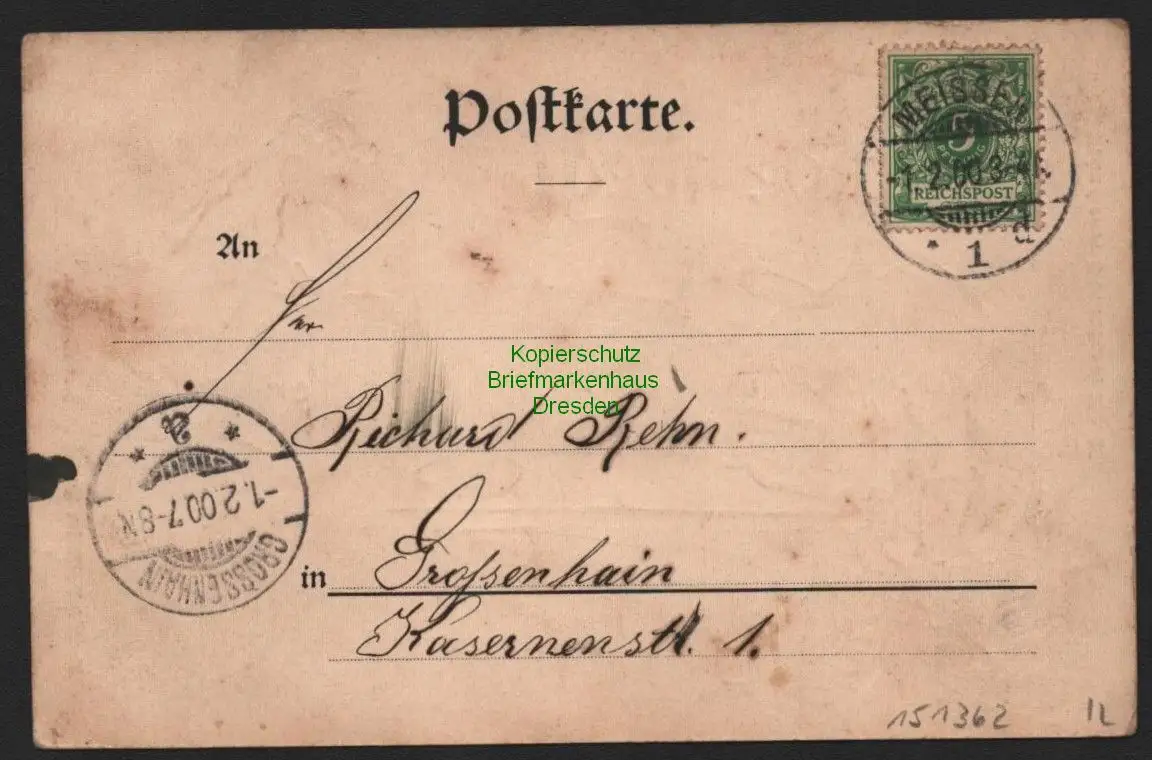 Postkarte.
MEISSEN
5
-1.2.00.3-4N.
REICHSPOST
* 1 d
An
Herr
Kopierschutz
Briefmarkenhaus
Dresden
Richard Rehn.
-1.2.00.7-8N.
GROSSENHAIN
in Großenhain
Kasernenstr. 1.
151362